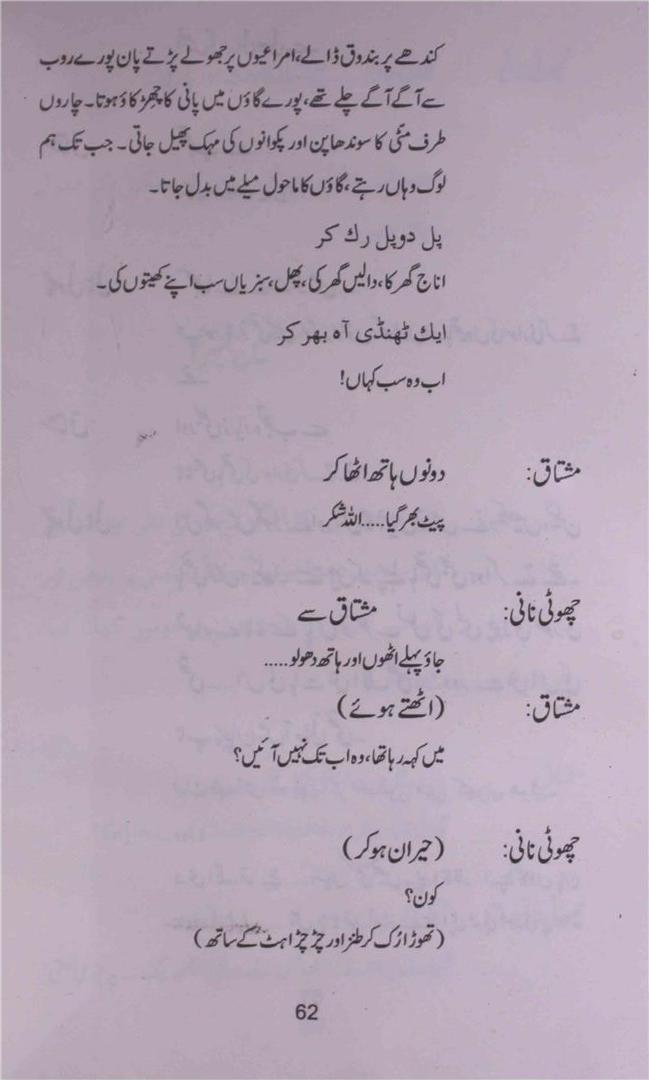 کندھے پر بندوق ڈالے، امراعیوں پر جھولے پڑتے پان پورے روب
سے آگے آگے چلے تھے، پورے گاؤں میں پانی کا چھڑکاؤ ہوتا۔ چاروں
طرف مٹی کا سوندھاپن اور پکوانوں کی مہک پھیل جاتی۔ جب تک ہم
لوگ وہاں رہتے، گاؤں کا ماحول میلے میں بدل جاتا۔
پل دوپل رك كر
اناج گھر کا، دالیں گھر کی، پھل، سبزیاں سب اپنے کھیتوں کی۔
ايك ٹھنڈی آہ بھر كر
اب وہ سب کہاں!
مشتاق: دونوں ہاتھ اٹھا کر
پیٹ بھر گیا.....اللہ شکر
چھوٹی نانی: مشتاق سے
جاؤ پہلے اٹھوں اور ہاتھ دھولو.....
مشتاق: (اٹھتے ہوئے)
میں کہہ رہا تھا، وہ اب تک نہیں آئیں؟
چھوٹی نانی: (حیران ہو کر)
کون؟
(تھوڑا رُک کر طنز اور چڑچڑاہٹ کے ساتھ)
62